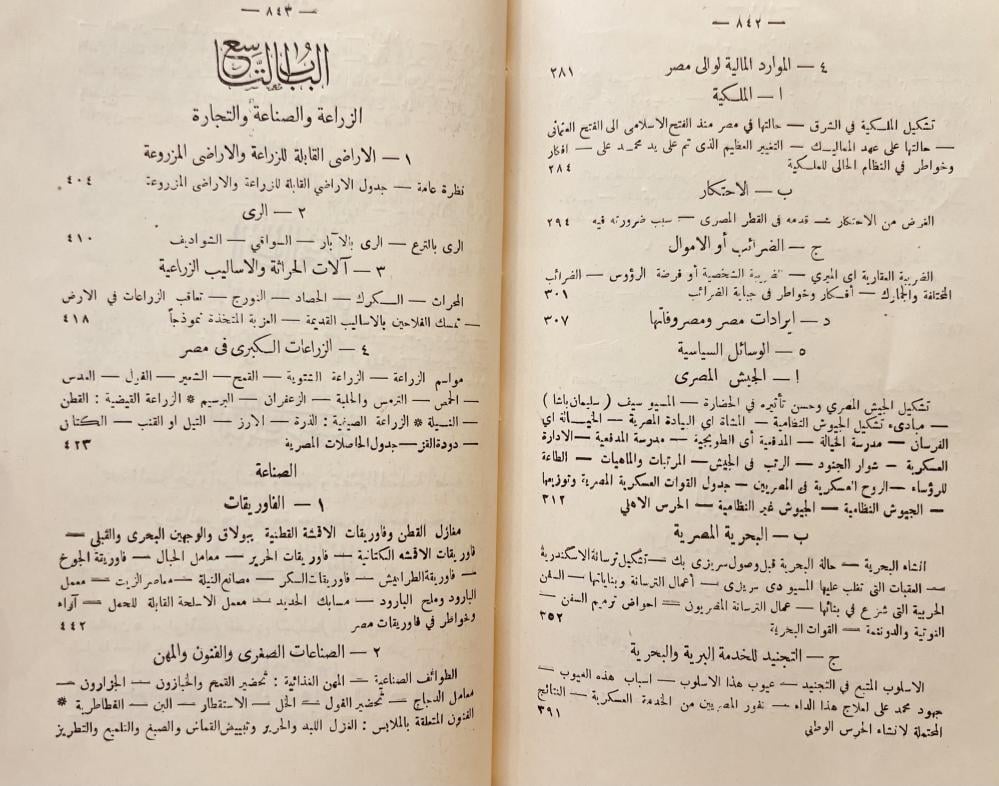 — ٨٤٢ —
٤ — الموارد المالية لوالى مصر ٢٨١
ا — الملكية
تشكيل الملكية في الشرق — حالتها في مصر منذ الفتح الاسلامى الى الفتح العثمانى
— حالتها على عهد المماليك — التغيير العظيم الذى تم على يد محمد على — افكار
وخواطر في النظام الحالى للملكية ٢٨٤
ب — الاحتكار
الغرض من الاحتكار — قدمه في القطر المصرى — سبب ضرورته فيه ٢٩٤
ج — الضرائب أو الاموال
الضريبة العقارية اى الميرى — الضريبة الشخصية أو فرضة الرؤوس — الضرائب
المختلفة والجمارك — أفكار وخواطر فى جباية الضرائب ٣٠١
د — ايرادات مصر ومصروفاتها ٣٠٧
٥ — الوسائل السياسية
ا — الجيش المصرى
تشكيل الجيش المصري وحسن تأثيره في الحضارة — المسيو سيف ( سليمان باشا )
— مبادىء تشكيل الجيوش النظامية — المشاة اى البيادة المصرية — الخيالة اى
الفرسان — مدرسة الخيالة — المدفعية أى الطوبجية — مدرسة المدفعية — الادارة
العسكرية — شوار الجنود — الرتب فى الجيش — المرتبات والماهيات — الطاعة
للرؤساء — الروح العسكرية فى المصريين — جدول القوات العسكرية المصرية وتوزيعها
— الجيوش النظامية — الجيوش غير النظامية — الحرس الاهلي ٣١٢
ب — البحرية المصرية
انشاء البحرية — حالة البحرية قبل وصول سريزى بك — تشكيل ترسانة الاسكندرية
— العقبات التى تغلب عليها المسيو دى سريزى — أعمال الترسانة وبناياتها — السفن
الحربية التى شرع في بنائها — عمال الترسانة المصريون — احواض ترميم السفن —
النوتية والدوننمة — القوات البحرية ٣٥٢
ج — التجنيد للخدمة البرية والبحرية
الاسلوب المتبع في التجنيد — عيوب هذا الاسلوب — اسباب هذه العيوب —
جهود محمد على لعلاج هذا الداء — نفور المصريين من الخدمة العسكرية — النتائج
المحتملة لانشاء الحرس الوطني ٣٩١
— ٨٤٣ —
الباب التاسع
الزراعة والصناعة والتجارة
١ — الاراضى القابلة للزراعة والاراضى المزروعة
نظرة عامة — جدول الاراضي القابلة للزراعة والاراضى المزروعة ٤٠٤
٢ — الرى
الرى بالترع — الرى بالآبار — السواقي — الشواديف ٤١٠
٣ — آلات الحراثة والاساليب الزراعية
المحراث — السكرك — الحصاد — النورج — تعاقب الزراعات في الارض
— تمسك الفلاحين بالاساليب القديمة — العزبة المتخذة نموذجاً ٤١٨
٤ — الزراعات الكبرى فى مصر
مواسم الزراعة — الزراعة الشتوية — القمح — الشعير — الفول — العدس
— الحمص — الترمس والحلبة — الزعفران — البرسيم * الزراعة القيضية : القطن
— النسيلة * الزراعة الصيفية : الذرة — الارز — التيل او القنب — الكتان
— دودة القز — جدول الحاصلات المصرية ٤٢٣
الصناعة
١ — الفاوريقات
مغازل القطن وفاوريقات الاقمشة القطنية ببولاق والوجهين البحرى والقبلى —
فاوريقات الاقمشه الكتانية — فاوريقات الحرير — معامل الحبال — فاوريقة الجوخ
— فاوريقة الطرابيش — فاوريقات السكر — مصانع النيلة — معاصر الزيت — معمل
البارود وملح البارود — مسابك الحديد — معمل الاسلحة القابلة للحمل — آراء
وخواطر في فاوريقات مصر ٤٤٢
٢ — الصناعات الصغرى والفنون والمهن
الطوائف الصناعية — المهن الغذائية : تحضير القمح والخبازون — الجزارون —
معامل الدجاج — تحضير الفول — الخل — الاستقطار — البن — القطاطرية *
الفنون المتعلقة بالملابس : الغزل اللبد والحرير وتبييض القماش والصبغ والتلميع والتطريز